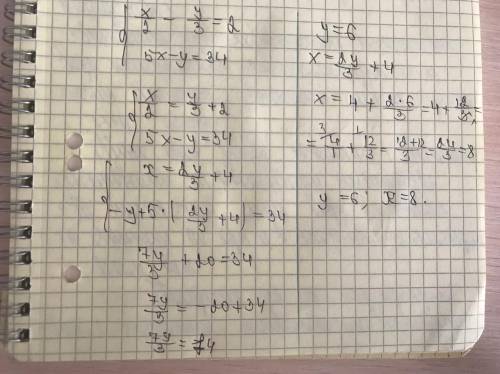 x/2 - y/3 = 2
5x-y=34
x/2 = y/3 + 2
5x-y=34
x = 2y/3 + 4
-y+5·(2y/3 + 4) = 34
7y/3 + 20 = 34
7y/3 = -20+34
7y/3 = 14
y=6
x = 2y/3 + 4
x = 4 + 2·6/3 = 4 + 12/3 =
= 4/1 + 12/3 = 12+12/3 = 24/3 = 8
y=6; x=8.